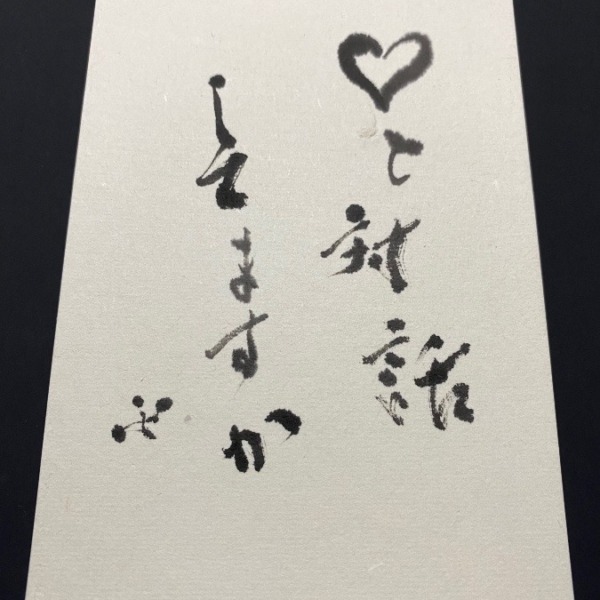 ♡と対話
してますか